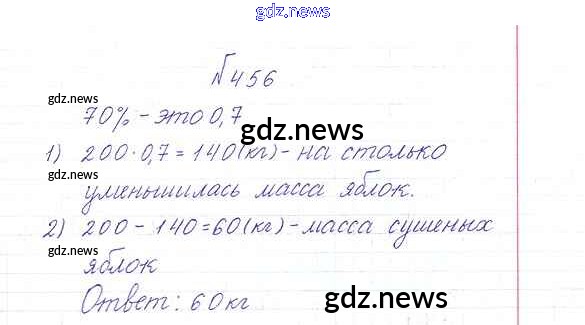 gdz.news
№456
gdz.news
70% - это 0,7
gdz.news
1) 200·0,7 = 140(кг) - на столько
уменьшилась масса яблок.
gdz.news
2) 200 - 140 = 60(кг) - масса сушеных
gdz.news
яблок
Ответ: 60 кг
gdz.news